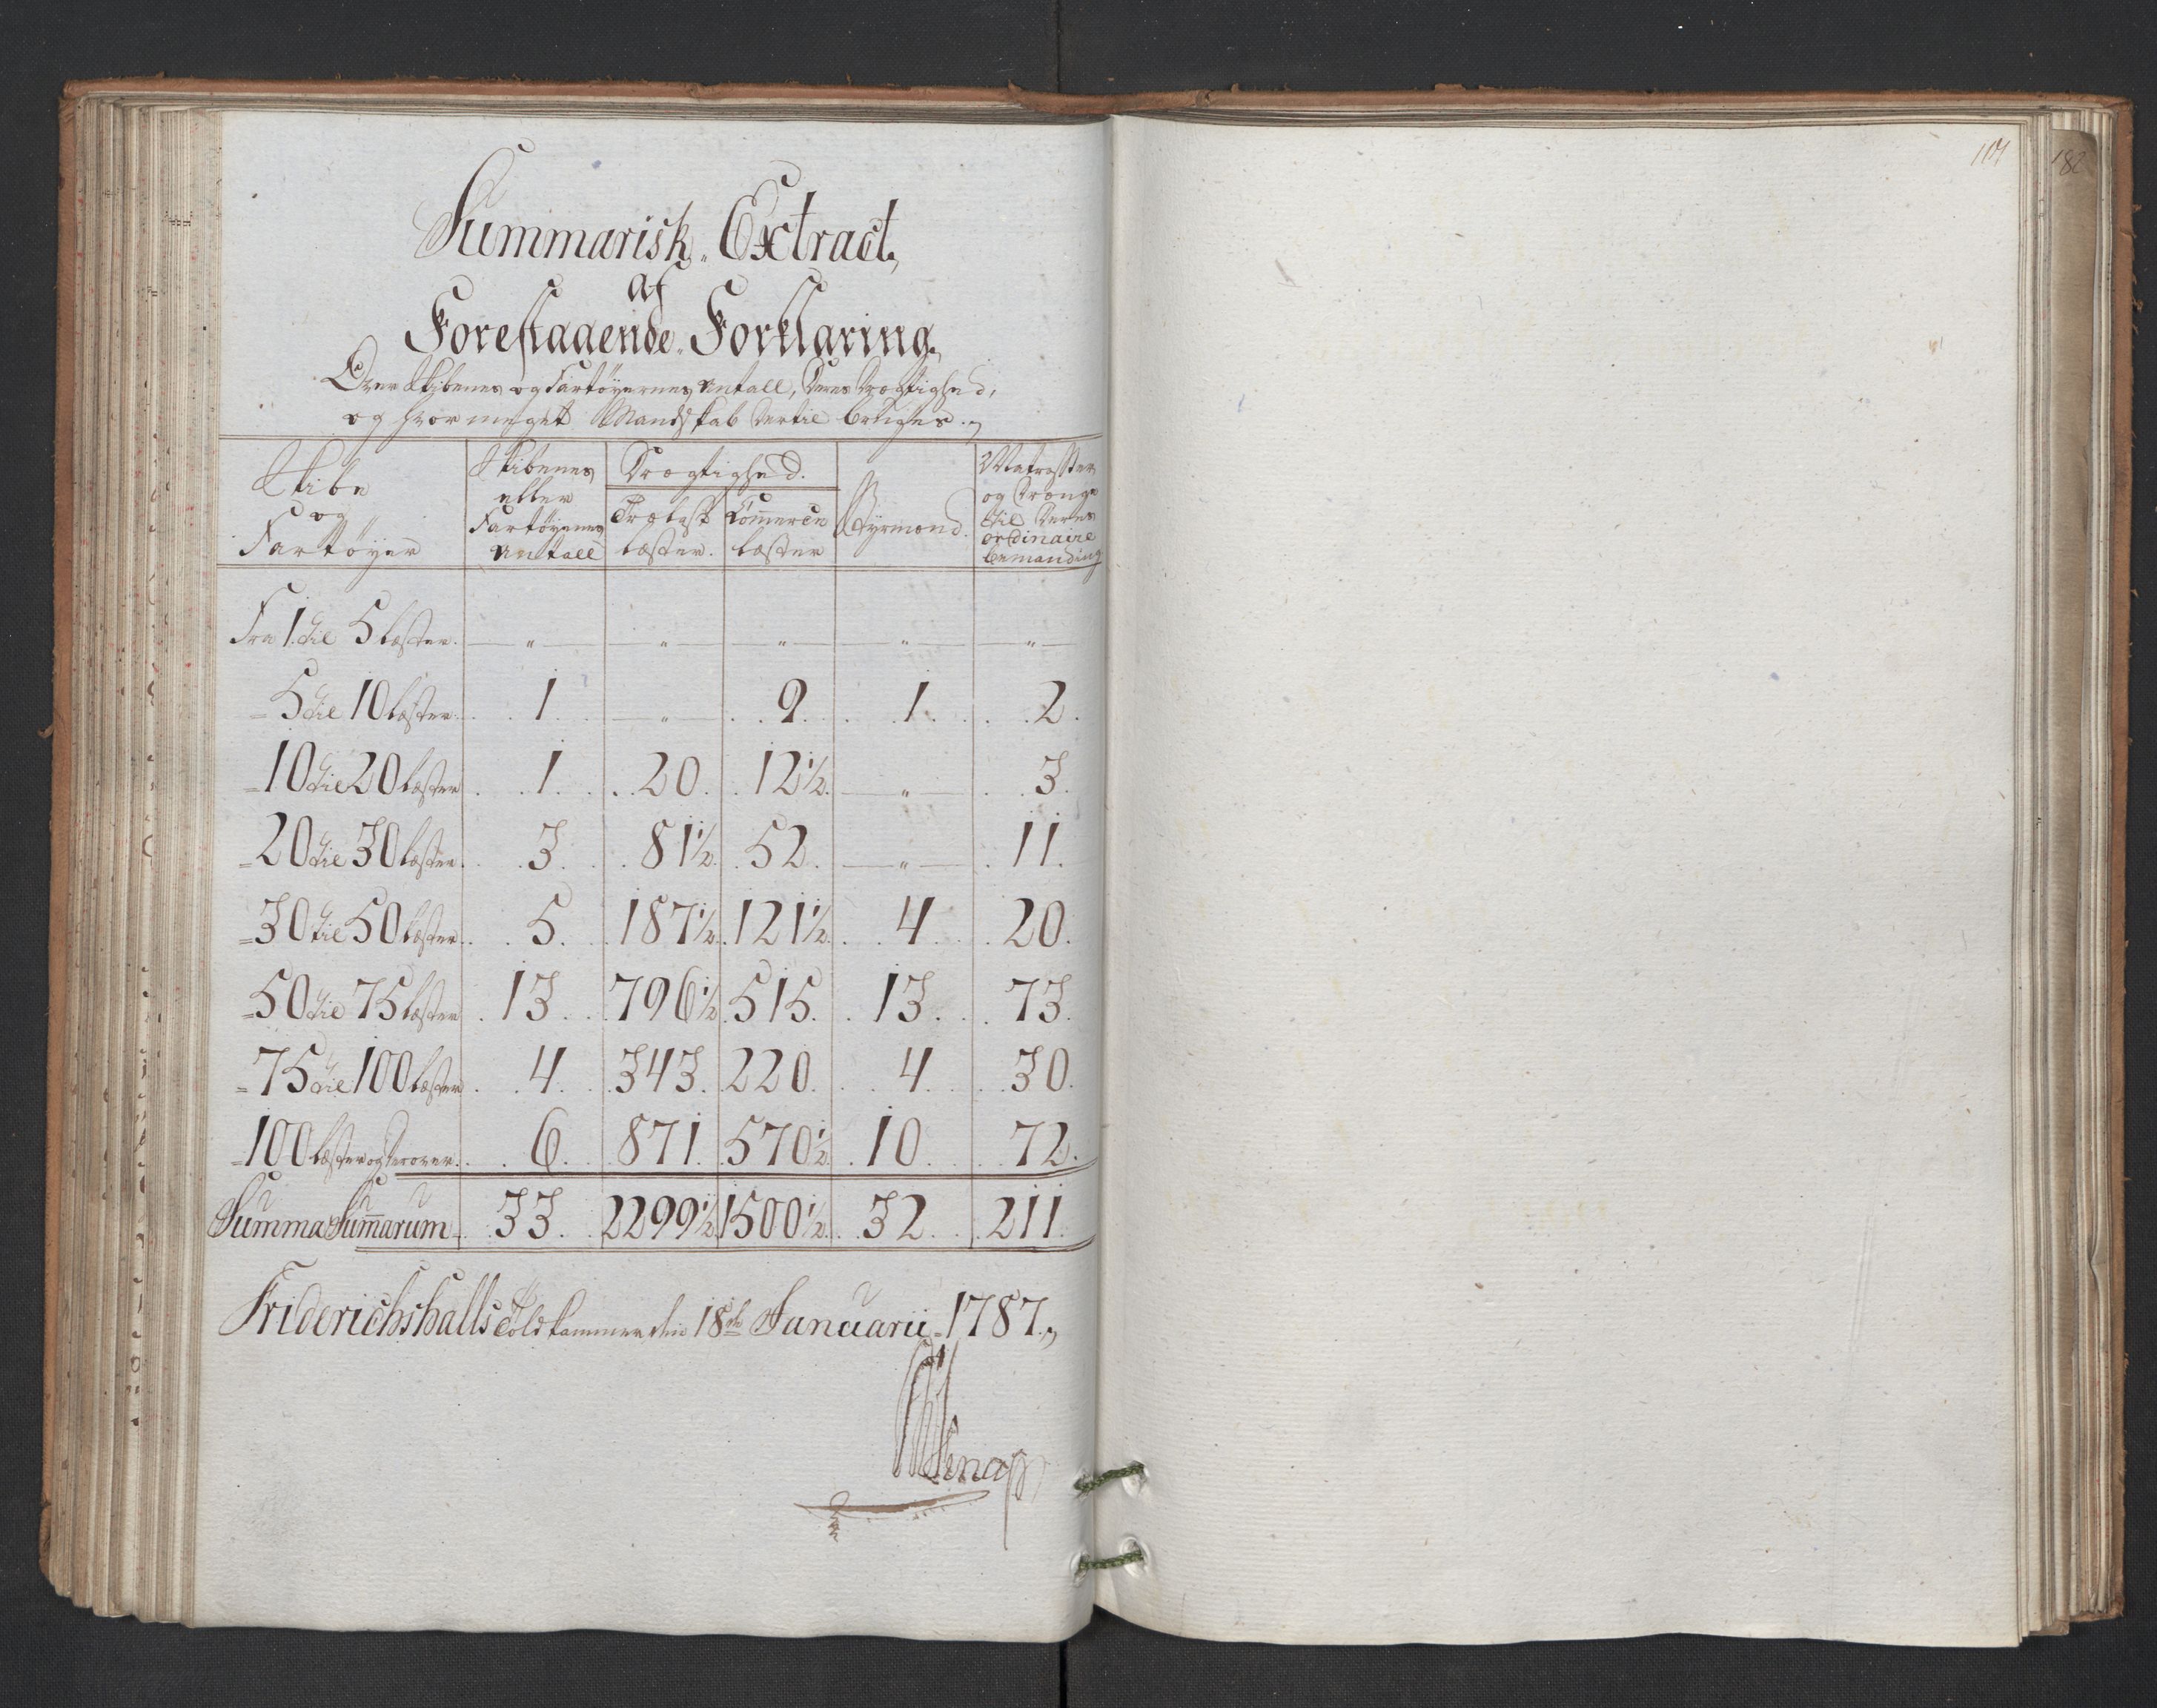 Summarisk Extract,
af
Forestaaende Forklaring,
Over Skibenes og Fartøyernes Antall, deres Drægtighed,
og hvor meget Mandskab dertil bruges.
Skibe
og
Fartøyer
Skibenes
eller
Fartøyernes
Antall
Drægtighed.
Trælast
læster.
Commerce
læster
Styrmænd.
Matrosser
og Drenge
til deres
ordinaire
bemanding
Fra 1. til 5 læster. — " — — " — — " — — " — — " —
= 5 til 10 læster. 1. — " — 9. 1. 2.
= 10 til 20 læster 1. 20. 12½. — " — 3.
= 20 til 30 læster. 3. 81½. 52. — " — 11.
= 30 til 50 læster. 5. 187½. 121½. 4. 20.
= 50 til 75 læster 13. 796½. 515. 13. 73.
= 75 til 100 læster 4. 343. 220. 4. 30.
= 100 læster og derover. 6. 871. 570½. 10. 72.
Summa Summarum 33. 2299½. 1500½. 32. 211.
Friderichshalls Toldkammer den 18de Januarii 1787.
104
182